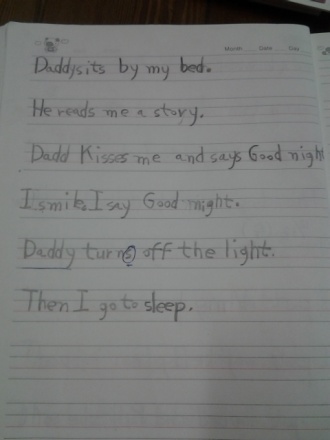 Month Date Day
Daddy sits by my bed.
He reads me a story.
Dadd Kisses me and says Good night
I smile. I say Good night.
Daddy turns off the light.
Then I go to sleep.